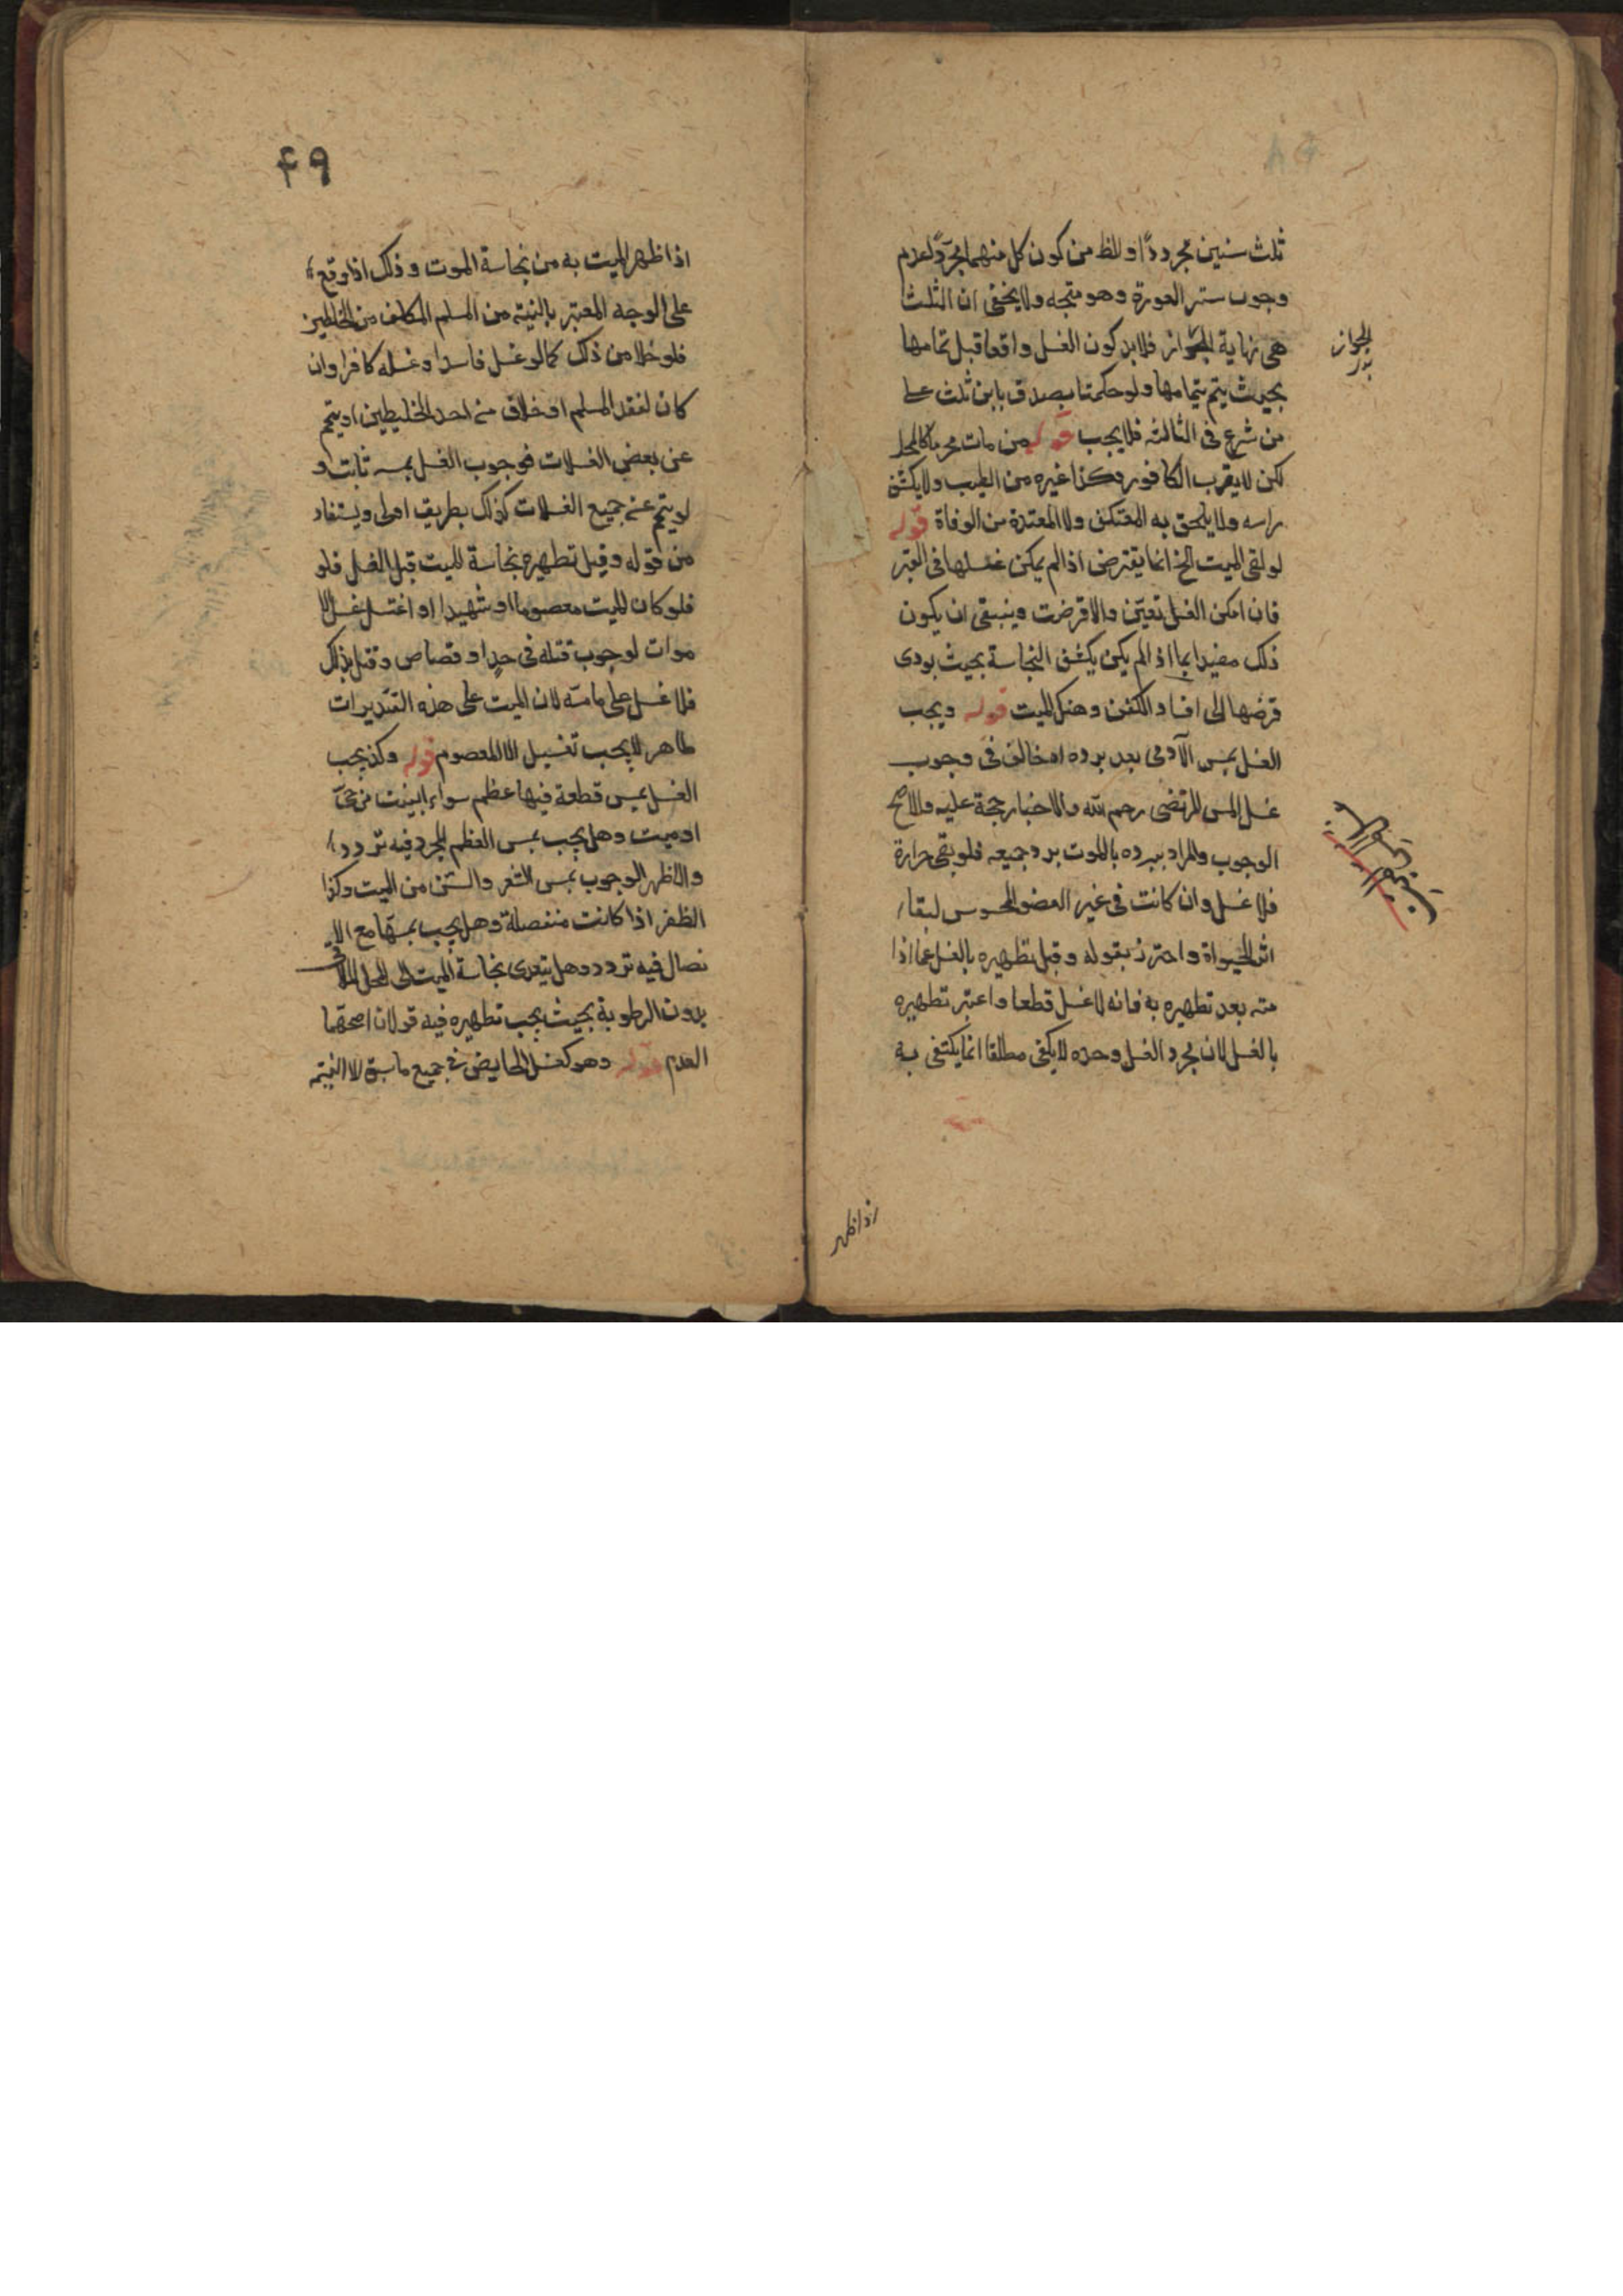 ثلث سنين مجردا وللظ من كون كل منهما مجردا لعدم
وجوب ستر العورة وهو متجه ولا يخفى ان الثلث
هى نهاية الجواز فلا بد كون الغسل واقعا قبل تمامها
بحيث يتم بتمامها ولو حكمنا بصدق بابن ثلث على
من شرع فى الثالثه فلا يجب قوله من مات محرما كالمحل
لكن لا يقرب الكافور وكذا غيره من الطيب ولا يكشف
راسه ولا يلحق به المعتكف ولا المعتدة من الوفاة قوله
لو لقى الميت الخ انما يقترض اذا لم يمكن غسلها فى القبر
فان امكن الغسل تعين والا قرضت وينبغى ان يكون
ذلك مقيدا بما اذا لم يكن يكشف النجاسة بحيث يودى
قرضها الى افساد الكفن وهتك الميت قوله ويجب
الغسل بمس الآدمى بعد برده ام خالف فى وجوب
غسل المس المرتضى رحمه الله والاخبار حجة عليه والاصح
الوجوب والمراد ببرده بالموت برد جميعه فلو بقى حرارة
فلا غسل وان كانت فى غير العضو المحسوس لبقاء
اثر الحيواة واحترز بقوله وقبل تطهيره بالغسل عما اذا
مته بعد تطهيره به فانه لا غسل قطعا واعتبر تطهيره
بالغسل لان مجرد الغسل وحده لا يكفى مطلقا انما يكتفى به
الجواز
اذا ظهر
٤٩
اذا ظهر الميت به من نجاسة الموت وذلك اذا وقع
على الوجه المعتبر بالنية من المسلم المكلف من الخليطين
فلو خلا من ذلك كما لو غسل فاسدا وغسله كافر او ان
كان لفقد المسلم او خلاف من احد الخليطين او يتم
عن بعض الغسلات فوجوب الغسل بمسه ثابت و
لو يتم عنه جميع الغسلات كذلك بطريق اولى ويستفاد
من قوله وقبل تطهيره نجاسة الميت قبل الغسل فلو
فلو كان الميت معصوما او شهيدا او اغتسل غسل الا
موات لوجوب قتله فى حد او قصاص وقتل بذلك
فلا غسل على مامسه لان الميت على هذه التقديرات
طاهر لا يجب تغسيل الا المعصوم قوله وكذا يجب
الغسل بمس قطعة فيها عظم سواء ابينت من حى
او ميت وهل يجب بمس العظم المجرد فيه تردد
والاظهر الوجوب بمس الشعر والسن من الميت وكذا
الظفر اذا كانت منفصلة وهل يجب بمسها مع الا
نصال فيه تردد وهل يتعدى نجاسة الميت الى المحل الملاقى
بدون الرطوبة بحيث يجب تطهيره فيه قولان اصحهما
العدم قوله وهو كغسل الحايض فى جميع ما سبق الا النية